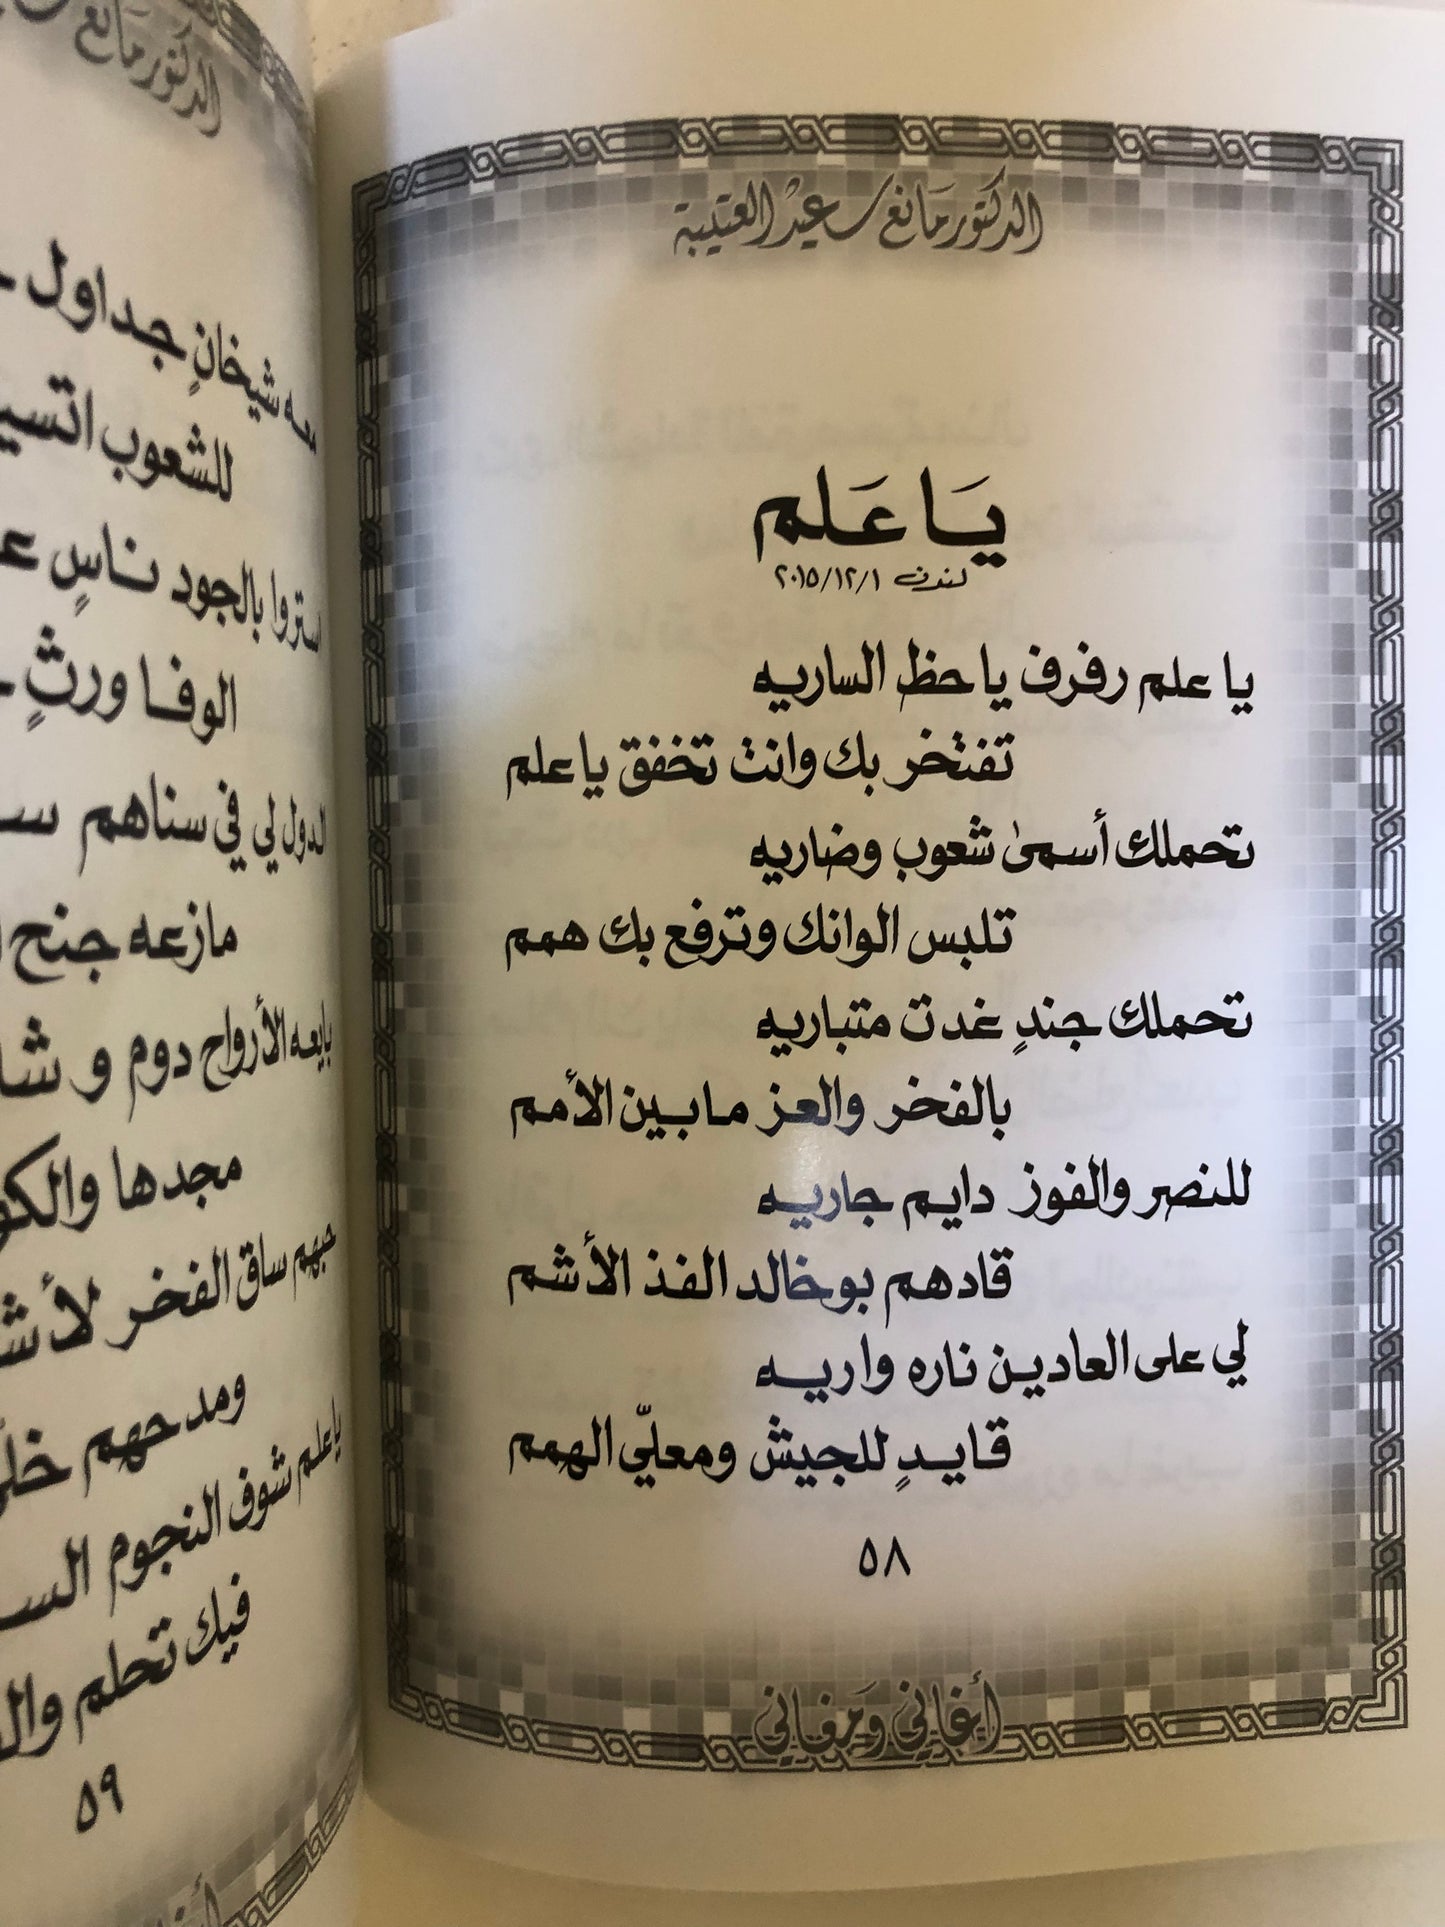 الدكتور مانع سعيد العتيبة
يَا عَلم
لندن ٢٠١٥/١٢/١
يا علم رفرف يا حظ الساريه
تفتخر بك وانت تخفق يا علم
تحملك أسمى شعوب وضاريه
تلبس الوانك وترفع بك همم
تحملك جندٍ غدت متباريه
بالفخر والعز ما بين الأمم
للنصر والفوز دايم جاريه
قادهم بوخالد الفذ الأشم
لي على العادين ناره واريه
قايدٍ للجيش ومعليّ الهمم
٥٨
أغاني وَمَغاني
الدكتور مانع
معه شيخانٍ جداول
للشعوب
ستروا بالجود ناسٍ
الوفا ورثٍ
الدول لي في سناهم
مازعه جنح
بايعه الأرواح دوم و
مجدها
حبهم ساق الفخر
ومدحهم
ياعلم شوف النجوم
فيك تحلم
٥٩